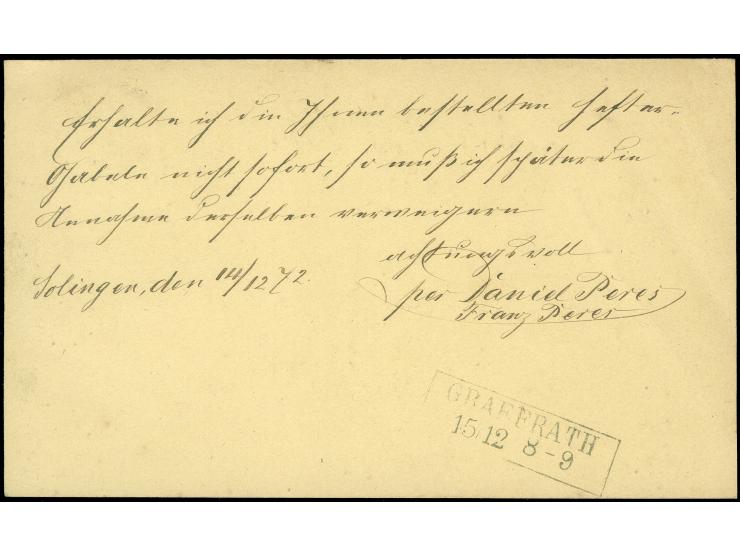 Erhalte ich die Ihnen bestellten Hefter-
Gabeln nicht sofort, so muß ich später die
Annahme derselben verweigern
achtungsvoll
Solingen, den 14/12 72.
per Daniel Peres
Franz Peres
GRAEFRATH
15/12 8-9